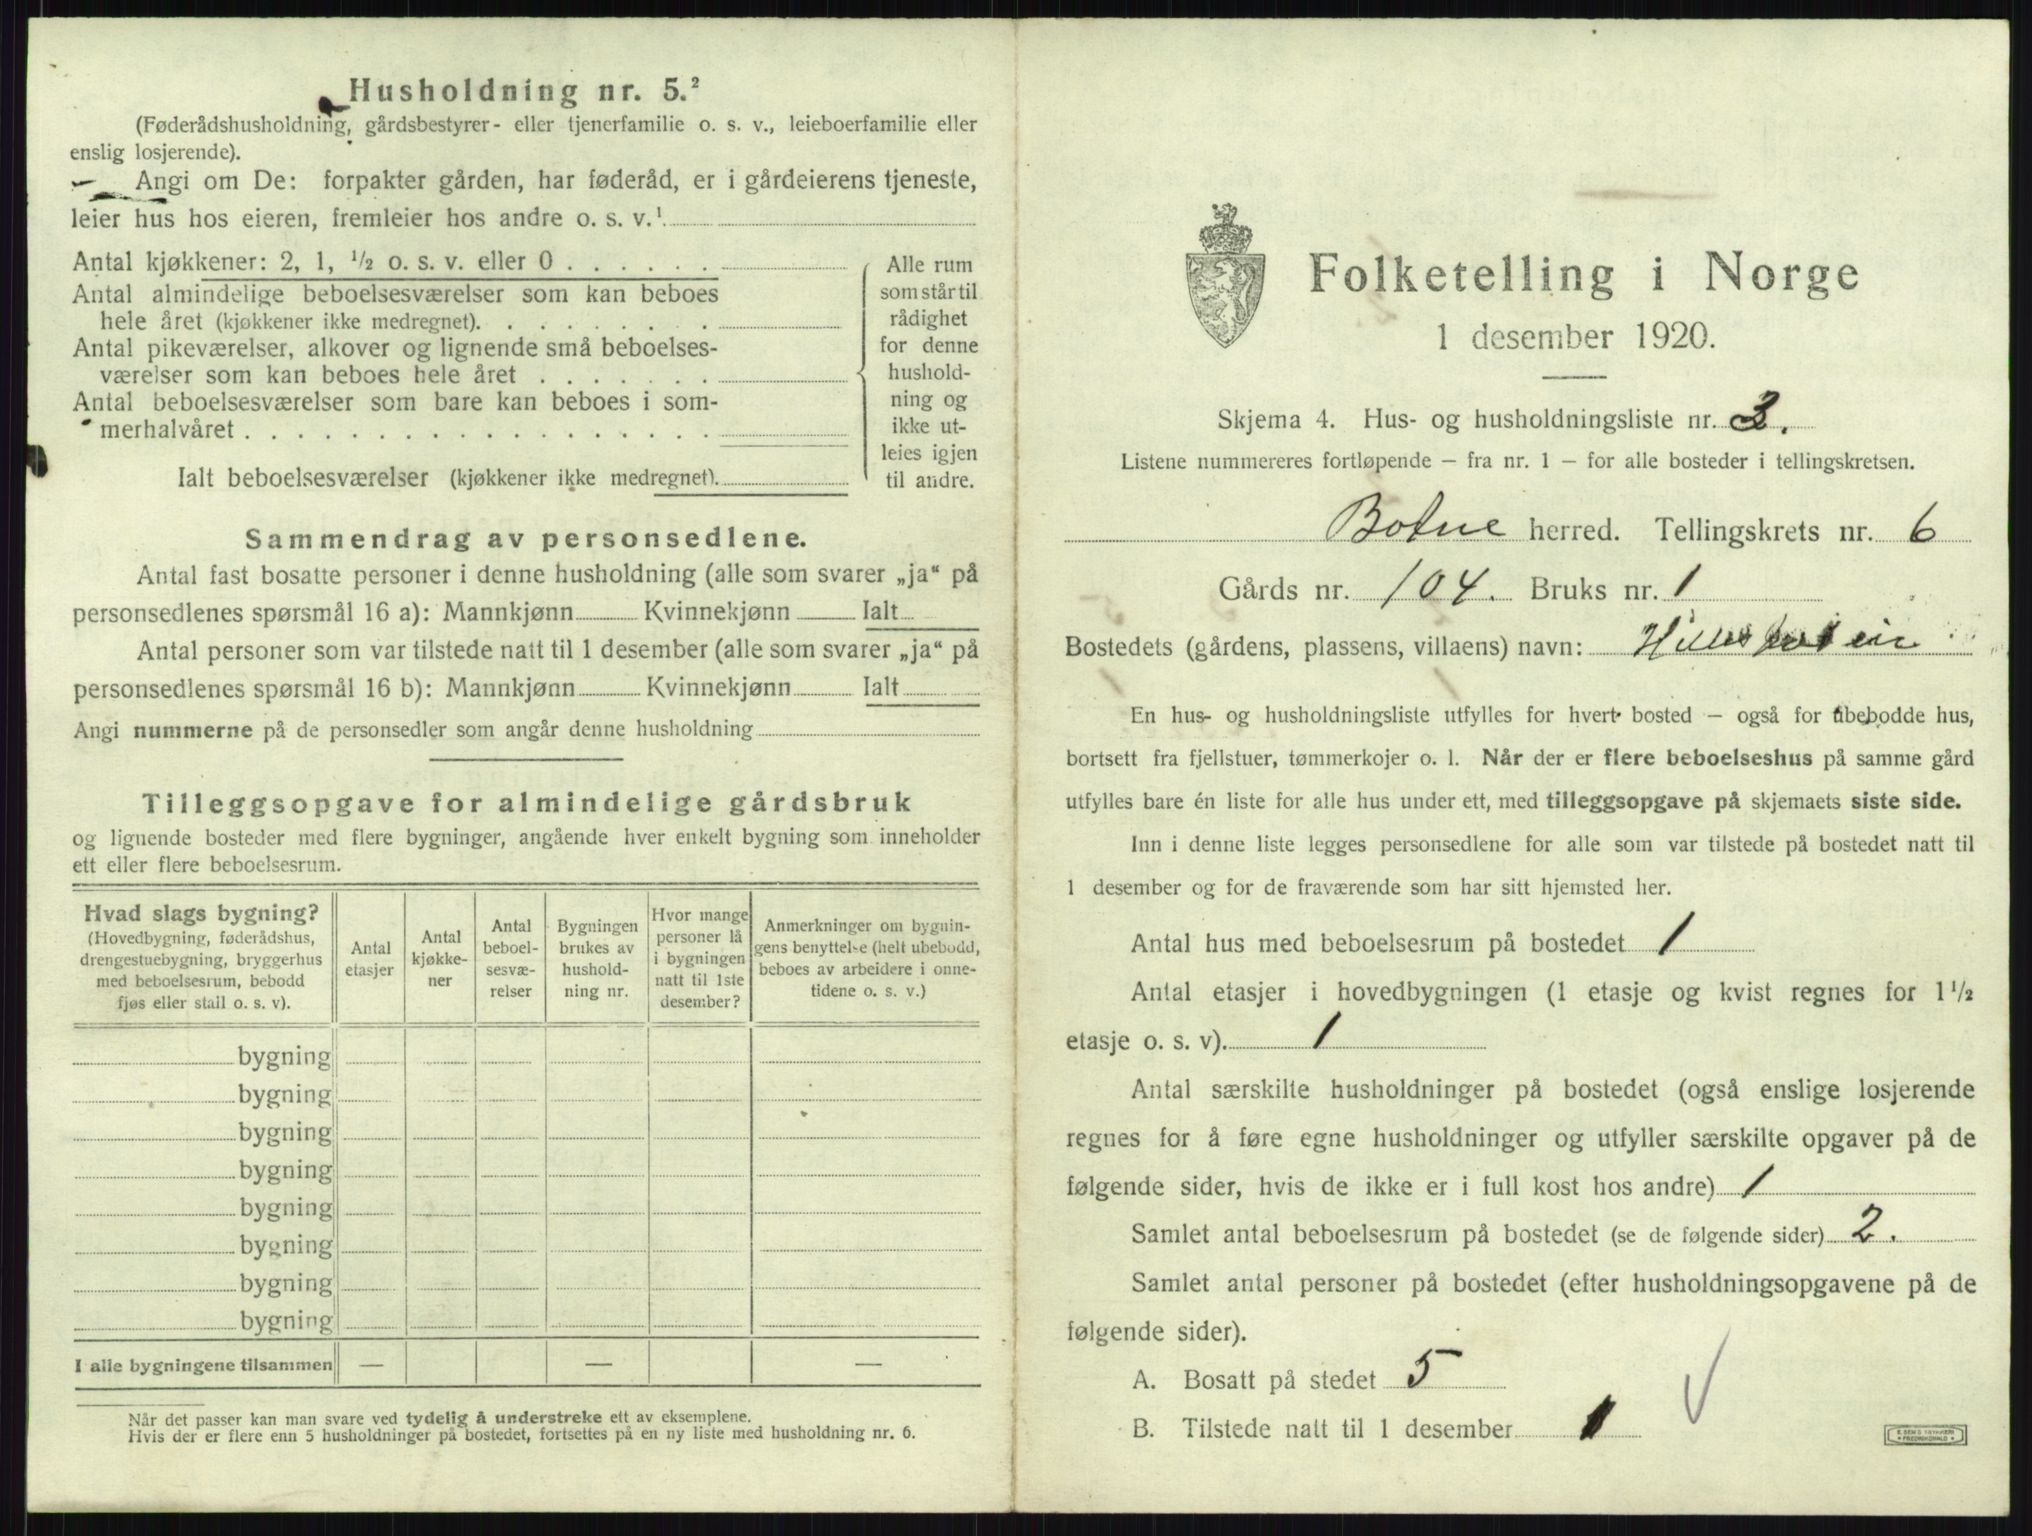 Husholdning nr. 5.²
(Føderådshusholdning, gårdsbestyrer- eller tjenerfamilie o. s. v., leieboerfamilie eller
enslig losjerende).
Angi om De: forpakter gården, har føderåd, er i gårdeierens tjeneste,
leier hus hos eieren, fremleier hos andre o. s. v.¹
Antal kjøkkener: 2, 1, ½ o. s. v. eller 0 . . . . . .
Antal almindelige beboelsesværelser som kan beboes
hele året (kjøkkener ikke medregnet). . . . . . . . .
Antal pikeværelser, alkover og lignende små beboelses-
værelser som kan beboes hele året . . . . . . .
Antal beboelsesværelser som bare kan beboes i som-
merhalvåret . . . . . . . . . . . . . . . . . .
Ialt beboelsesværelser (kjøkkener ikke medregnet).
Alle rum
som står til
rådighet
for denne
hushold-
ning og
ikke ut-
leies igjen
til andre.
Sammendrag av personsedlene.
Antal fast bosatte personer i denne husholdning (alle som svarer „ja“ på
personsedlenes spørsmål 16 a): Mannkjønn Kvinnekjønn Ialt
Antal personer som var tilstede natt til 1 desember (alle som svarer „ja“ på
personsedlenes spørsmål 16 b): Mannkjønn Kvinnekjønn Ialt
Angi nummerne på de personsedler som angår denne husholdning
Tilleggsopgave for almindelige gårdsbruk
og lignende bosteder med flere bygninger, angående hver enkelt bygning som inneholder
ett eller flere beboelsesrum.
Hvad slags bygning?
(Hovedbygning, føderådshus,
drengestuebygning, bryggerhus
med beboelsesrum, bebodd
fjøs eller stall o. s. v).
Antal
etasjer
Antal
kjøkke-
ner
Antal
beboel-
sesvæ-
relser
Bygningen
brukes av
hushold-
ning nr.
Hvor mange
personer lå
i bygningen
natt til 1ste
desember?
Anmerkninger om bygnin-
gens benyttelse (helt ubebodd,
beboes av arbeidere i onne-
tidene o. s. v.)
bygning
bygning
bygning
bygning
bygning
bygning
bygning
bygning
I alle bygningene tilsammen — — —
Når det passer kan man svare ved tydelig å understreke ett av eksemplene.
Hvis der er flere enn 5 husholdninger på bostedet, fortsettes på en ny liste med husholdning nr. 6.
Folketelling i Norge
1 desember 1920.
Skjema 4. Hus- og husholdningsliste nr. 3.
Listene nummereres fortløpende – fra nr. 1 – for alle bosteder i tellingskretsen.
Botne herred. Tellingskrets nr. 6
Gårds nr. 104. Bruks nr. 1
Bostedets (gårdens, plassens, villaens) navn:
En hus- og husholdningsliste utfylles for hvert bosted – også for ubebodde hus,
bortsett fra fjellstuer, tømmerkojer o. l. Når der er flere beboelseshus på samme gård
utfylles bare én liste for alle hus under ett, med tilleggsopgave på skjemaets siste side.
Inn i denne liste legges personsedlene for alle som var tilstede på bostedet natt til
1 desember og for de fraværende som har sitt hjemsted her.
Antal hus med beboelsesrum på bostedet 1
Antal etasjer i hovedbygningen (1 etasje og kvist regnes for 1½
etasje o. s. v). 1
Antal særskilte husholdninger på bostedet (også enslige losjerende
regnes for å føre egne husholdninger og utfyller særskilte opgaver på de
følgende sider, hvis de ikke er i full kost hos andre) 1
Samlet antal beboelsesrum på bostedet (se de følgende sider) 2.
Samlet antal personer på bostedet (efter husholdningsopgavene på de
følgende sider).
A. Bosatt på stedet 5
B. Tilstede natt til 1 desember